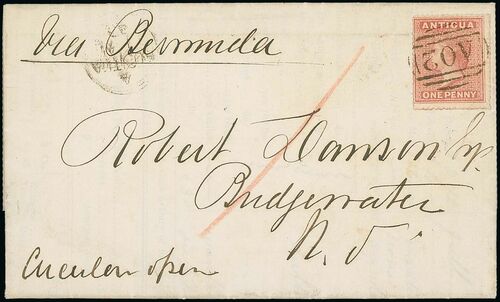 Via Bermuda
ANTIGUA
A02
ONE PENNY
Robert Dawson Esq.
Bridgewater
N. S.
Circular open